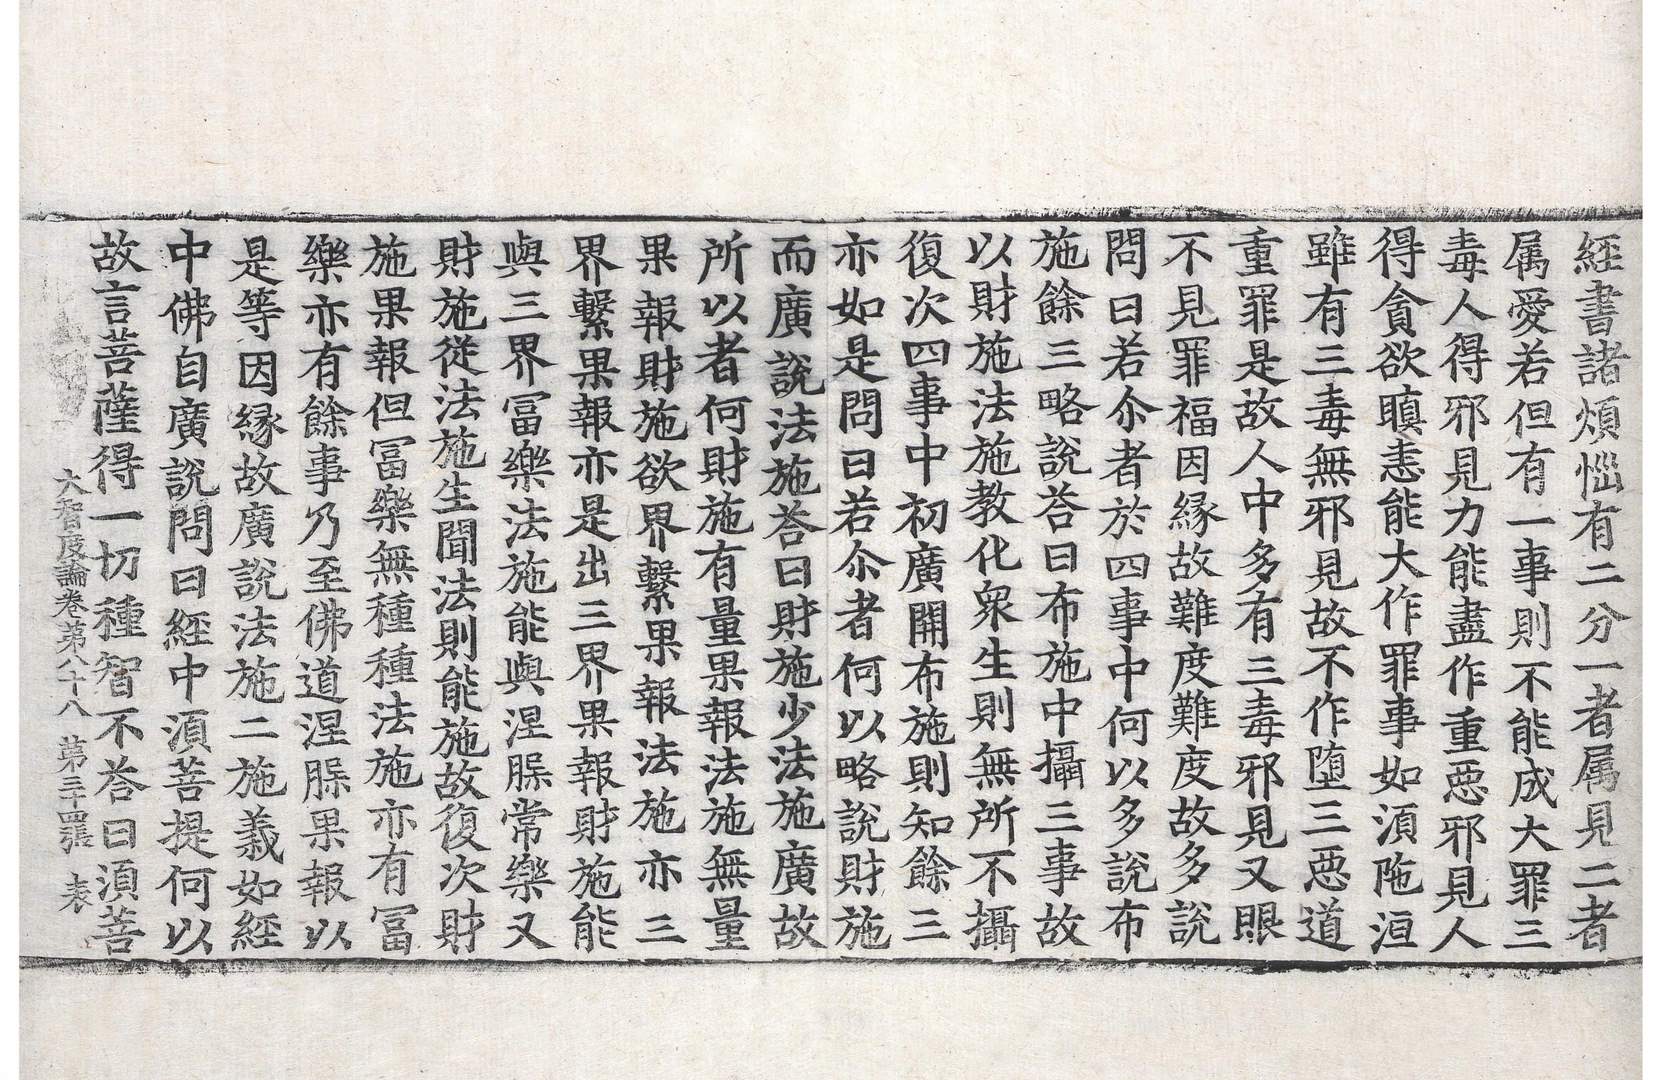 經書諸煩惱有二分一者属見二者
属愛若但有一事則不能成大罪三
毒人得邪見力能盡作重惡邪見人
得貪欲瞋恚能大作罪事如湏陁洹
雖有三毒無邪見故不作堕三惡道
重罪是故人中多有三毒邪見又眼
不見罪福因緣故難度難度故多說
問曰若尒者於四事中何以多說布
施餘三略說荅曰布施中攝三事故
以財施法施教化衆生則無所不攝
復次四事中初廣開布施則知餘三
亦如是問曰若尒者何以略說財施
而廣說法施荅曰財施少法施廣故
所以者何財施有量果報法施無量
果報財施欲界繫果報法施亦三
界繫果報亦是出三界果報財施能
與三界冨樂法施能與涅槃常樂又
財施從法施生聞法則能施故復次財
施果報但冨樂無種種法施亦有冨
樂亦有餘事乃至佛道涅槃果報以
是等因緣故廣說法施二施義如經
中佛自廣說問曰經中湏菩提何以
故言菩薩得一切種智不荅曰湏菩
大智度論卷第八十八 第三十四張 表